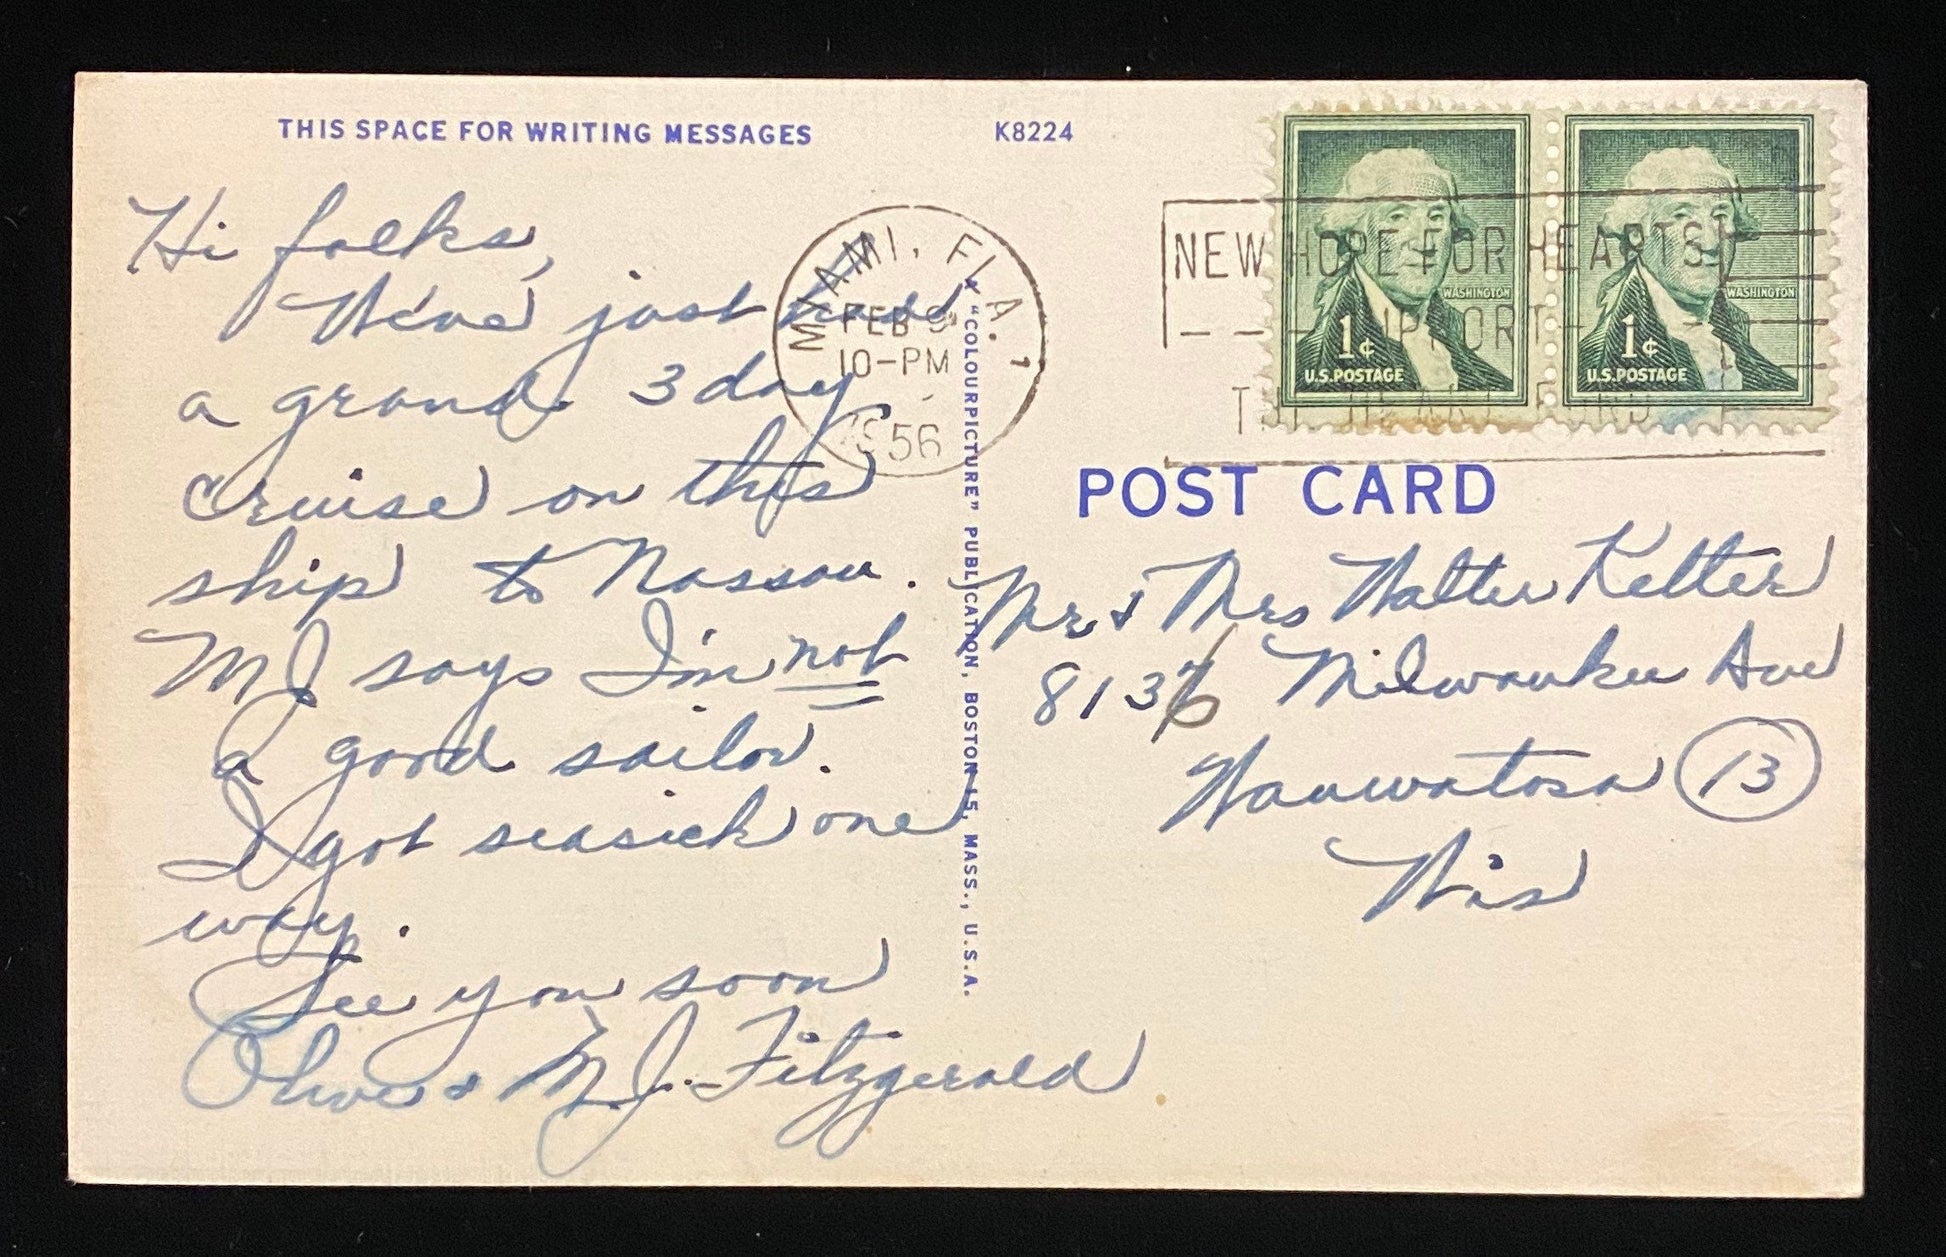 THIS SPACE FOR WRITING MESSAGES
K8224
Hi folks,
We've just had
a grand 3 day
cruise on this
ship to Nassau.
MJ says I'm not
a good sailor.
I got seasick one
way.
See you soon
Olive & M.J. Fitzgerald
MIAMI, FLA. 1
FEB 9
10-PM
1956
NEW HOPE FOR HEARTS
SUPPORT
THE HEART FUND
WASHINGTON
1¢
U.S. POSTAGE
WASHINGTON
1¢
U.S. POSTAGE
"COLOURPICTURE" PUBLICATION, BOSTON 15, MASS., U.S.A.
POST CARD
Mr & Mrs Walter Ketter
8136 Milwaukee Ave
Wauwatosa 13
Wis